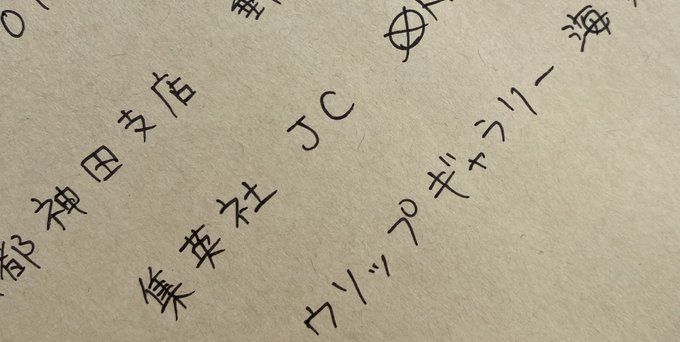 都神田支店
集英社 JC
ウソップギャラリー海